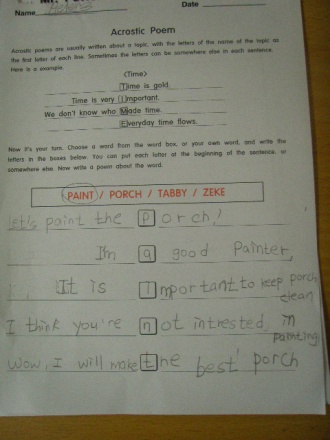 Name
Date
Acrostic Poem
Acrostic poems are usually written about a topic, with the letters of the name of the topic as
the first letter of each line. Sometimes the letters can be somewhere else in each sentence.
Here is a example.
<Time>
Time is gold.
Time is very Important.
We don't know who Made time.
Everyday time flows.
Now it's your turn. Choose a word from the word box, or your own word, and write the
letters in the boxes below. You can put each letter at the beginning of the sentence, or
somewhere else. Now write a poem about the word.
PAINT / PORCH / TABBY / ZEKE
let's paint the porch!
I'm a good Painter,
It is Important to keep porch
clean
I think you're not intrested in
painting
Wow, I will make the best porch